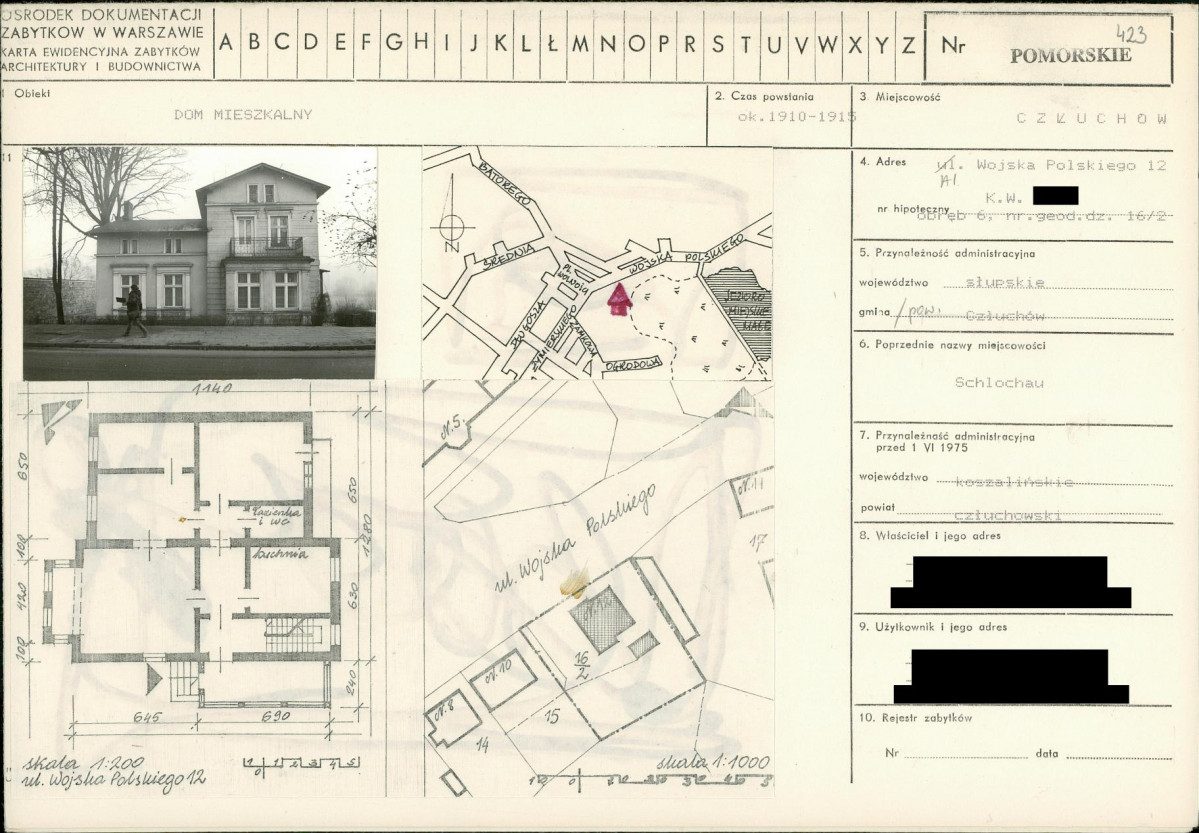 OŚRODEK DOKUMENTACJI
ZABYTKÓW W WARSZAWIE
KARTA EWIDENCYJNA ZABYTKÓW
ARCHITEKTURY I BUDOWNICTWA
A B C D E F G H I J K L Ł M N O P R S T U V W X Y Z
Nr
423
POMORSKIE
1 Obiekt
DOM MIESZKALNY
2. Czas powstania
ok.1910-1915
3. Miejscowość
CZŁUCHÓW
11
BATOREGO
ŚREDNIA
WOJSKA POLSKIEGO
PL. WOLNOŚCI
DŁUGOSZA
ŻYMIERSKIEGO
ZAMKOWA
OGRODOWA
JEZIORO
MIEJSKIE
MAŁE
N
4. Adres
ul. Wojska Polskiego 12
Al
K.W.
nr hipoteczny
obręb 6, nr.geod.dz. 16/2
5. Przynależność administracyjna
województwo słupskie
gmina /pow. Człuchów
6. Poprzednie nazwy miejscowości
Schlochau
7. Przynależność administracyjna
przed 1 VI 1975
województwo koszalińskie
powiat człuchowski
8. Właściciel i jego adres
9. Użytkownik i jego adres
10. Rejestr zabytków
Nr
data
1140
650
100
420
100
650
1280
630
240
łazienka
i WC
kuchnia
645
690
skala 1:200
ul. Wojska Polskiego 12
1 0 1 2 3 4 5
N.5.
ul. Wojska Polskiego
N.11
17
16/2
N.10
N.8
15
14
skala 1:1000